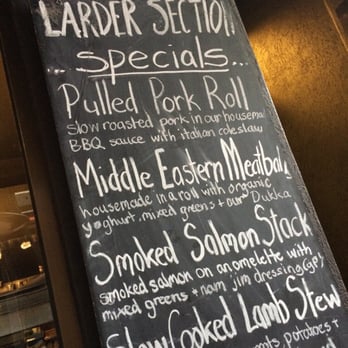 LARDER SECTION
... specials...
Pulled Pork Roll
slow roasted pork in our housema
BBQ sauce with italian coleslaw
Middle Eastern Meatball
housemade in a roll with organic
yoghurt, mixed greens + our Dukka
Smoked Salmon Stack
smoked salmon on an omelette with
mixed greens + nam jim dressing (gf)
Slow Cooked Lamb Stew
potatoes +